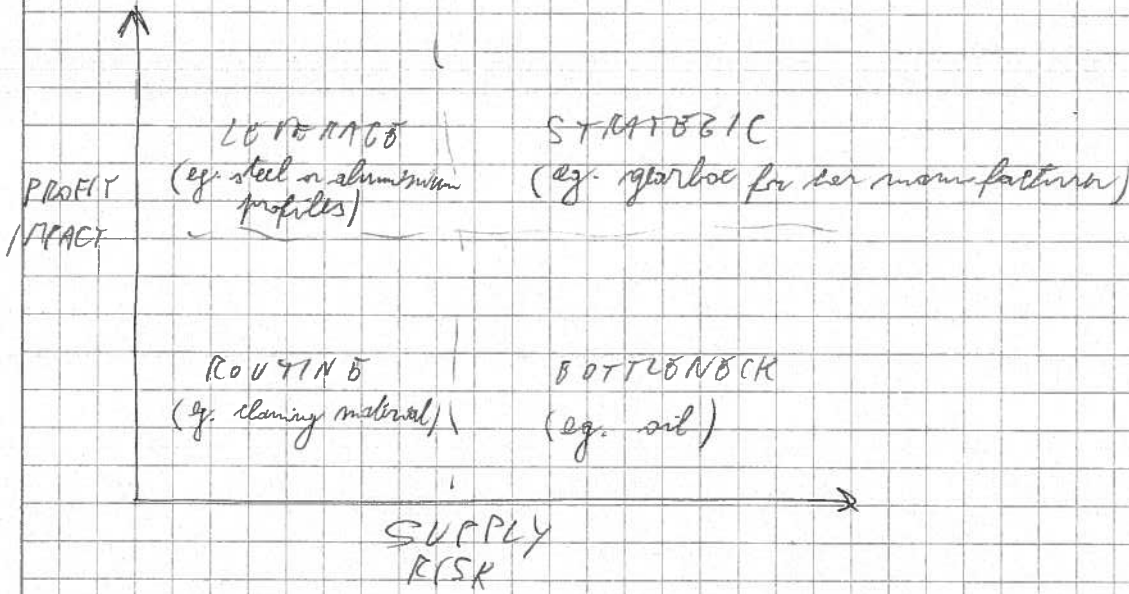 LEVERAGE
(eg. steel or aluminium
profiles)
STRATEGIC
(eg. gearbox for car manufacturer)
PROFIT
IMPACT
ROUTINE
(eg. cleaning material)
BOTTLENECK
(eg. oil)
SUPPLY
RISK